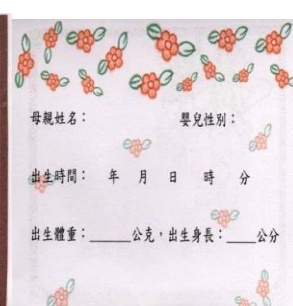 母親姓名： 嬰兒性別：
出生時間： 年 月 日 時 分
出生體重：______公克，出生身長：____公分